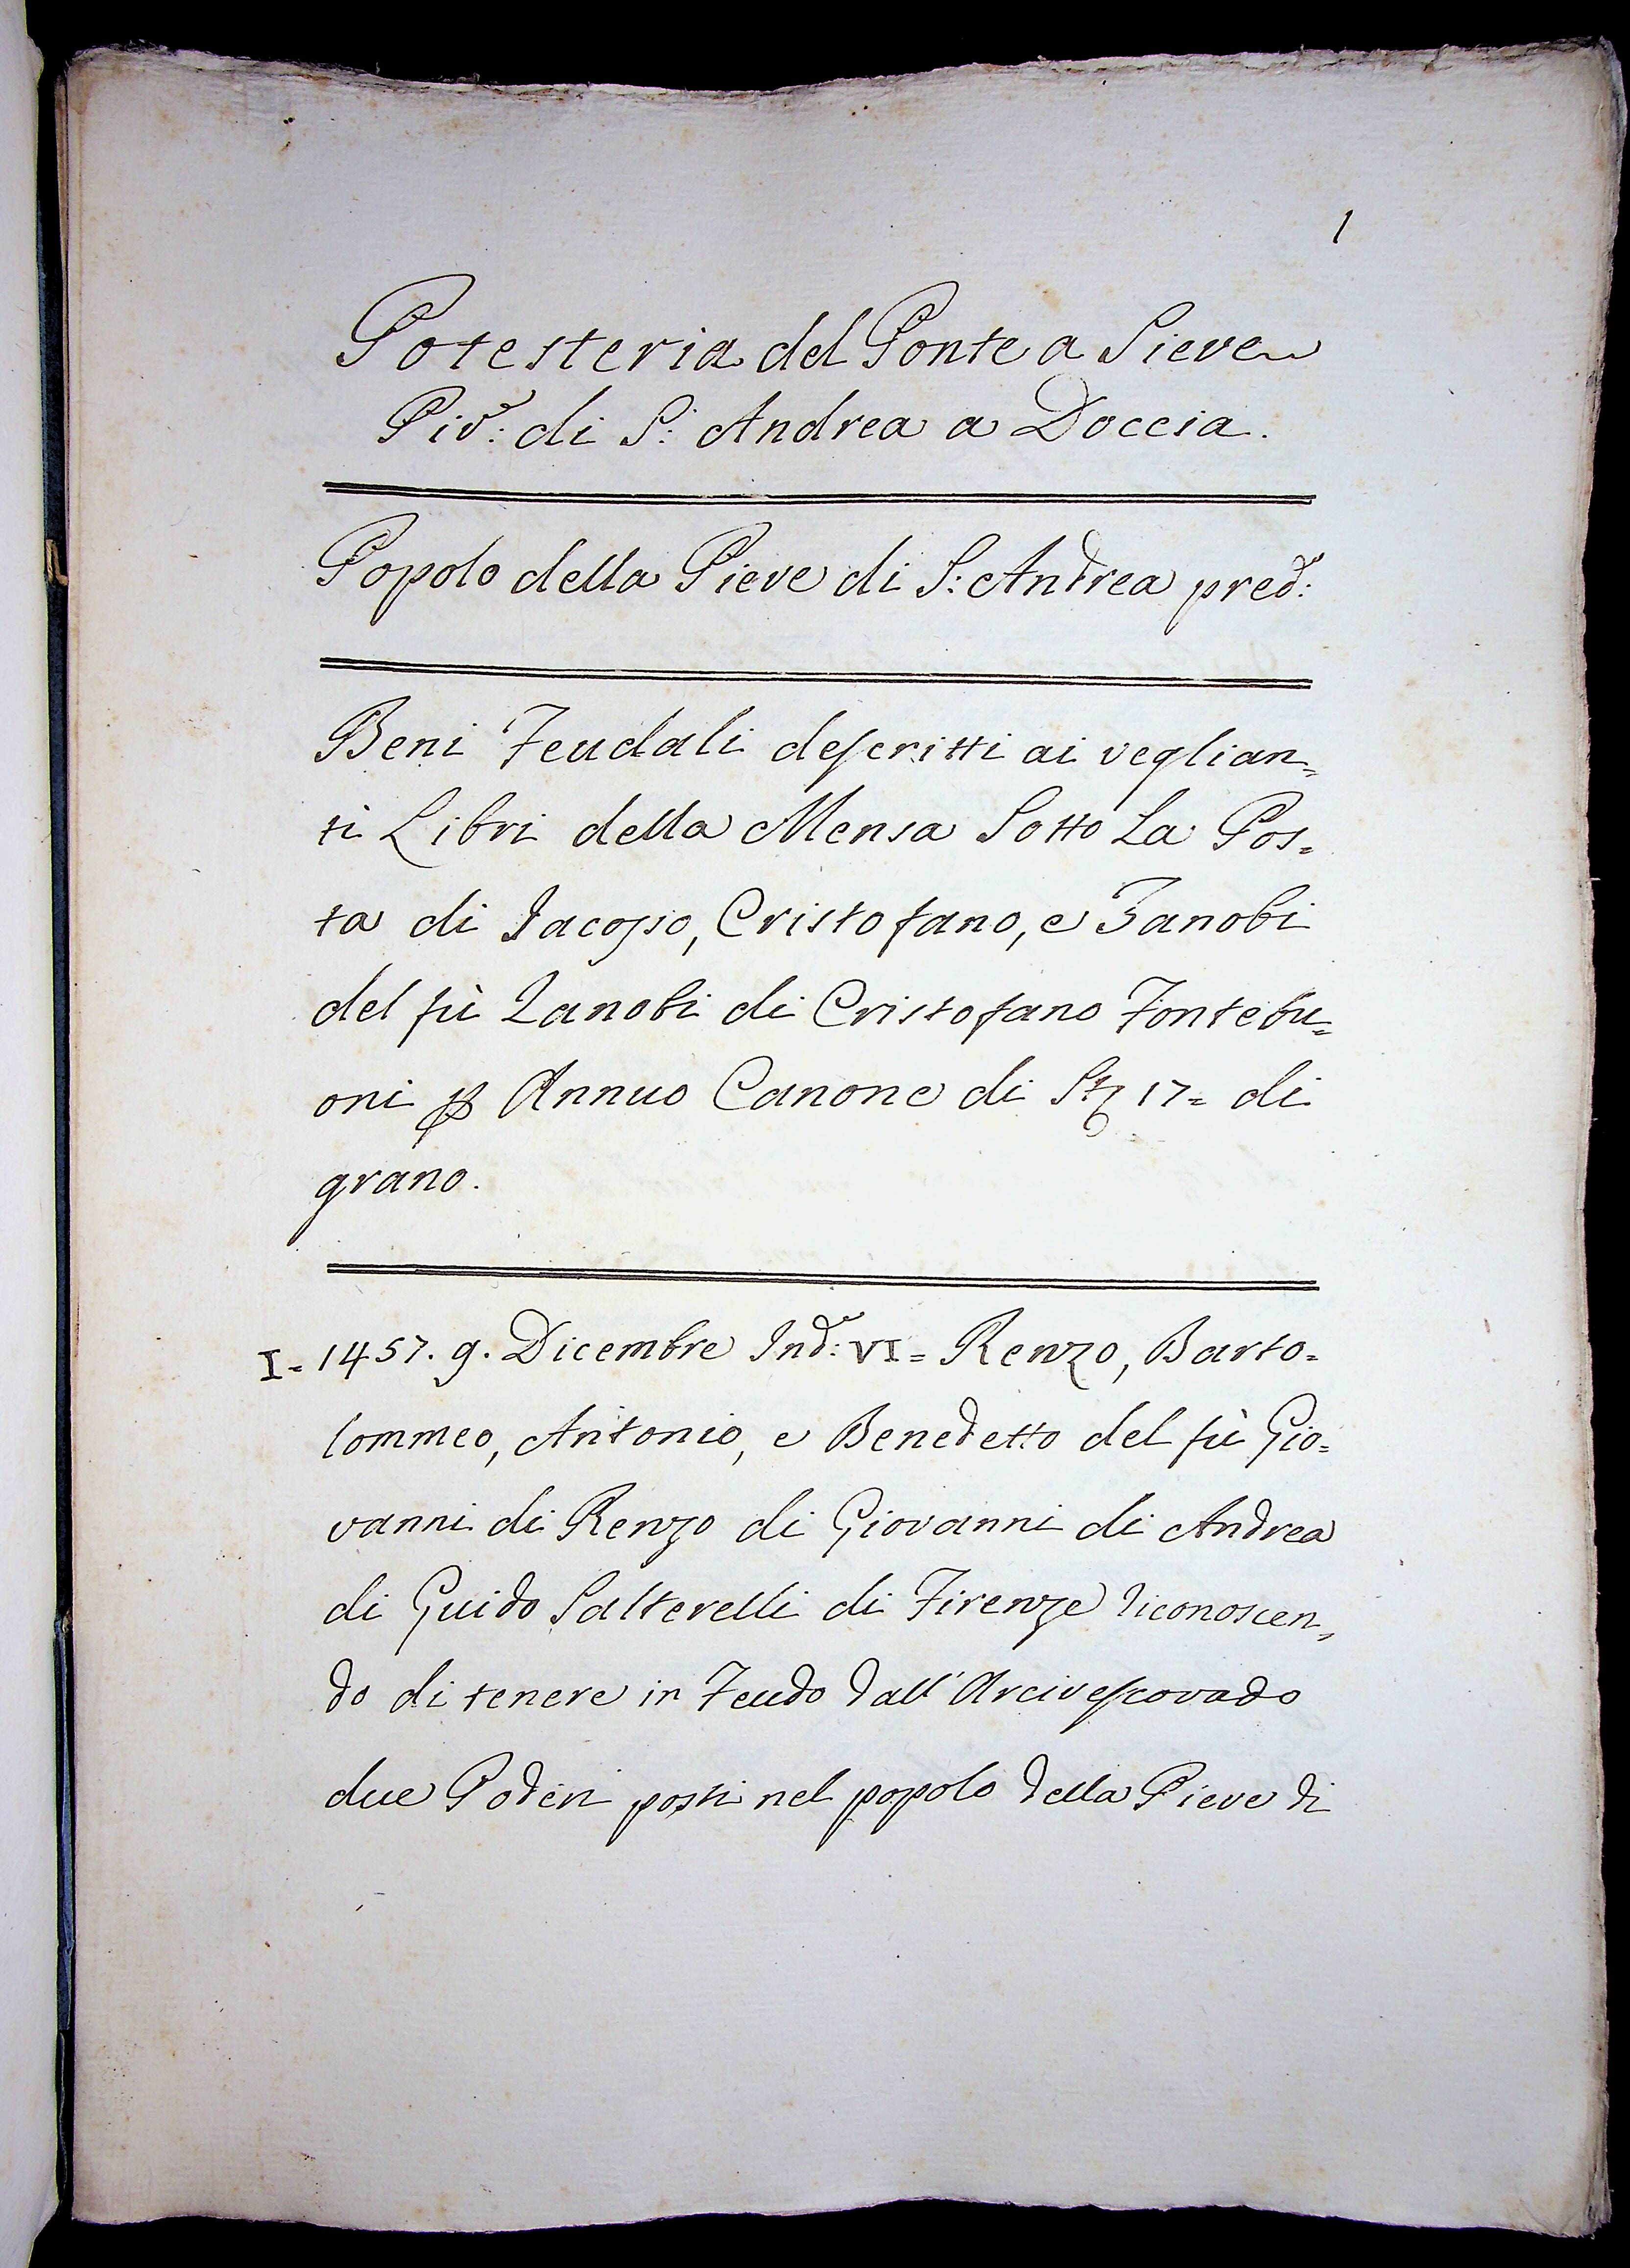 1
Potesteria del Ponte a Sieve
Piv.e: di S: Andrea a Doccia.
Popolo della Pieve di S: Andrea pred.a:
Beni Feudali descritti ai veglian=
ti Libri della Mensa Sotto La Pos=
ta di Jacopo, Cristofano, e Zanobi
del fù Zanobi di Cristofano Fontebu=
oni p Annuo Canone di Sta 17= di
grano.
I= 1457. 9. Dicembre Ind.e: VI= Renzo, Barto=
lommeo, Antonio, e Benedetto del fù Gio=
vanni di Renzo di Giovanni di Andrea
di Guido Salterelli di Firenze riconoscen=
do di tenere in Feudo dall' Arcivescovado
due Poderi posti nel popolo della Pieve di